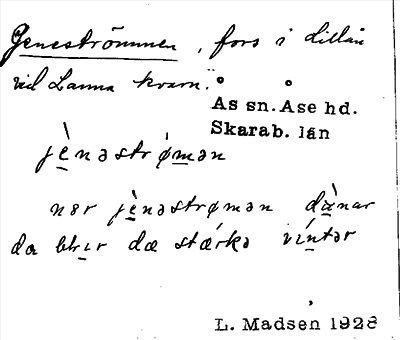 Jeneströmmen, fors i Lillån
vid Lanna kvarn.
Ås sn. Åse hd.
Skarab. län
jè̱nəstrǿm̱ən
nər jè̱nəstrømən dù̱nar
då blı̱r dæ stǽrkə ví̱ntər
L. Madsen 1928